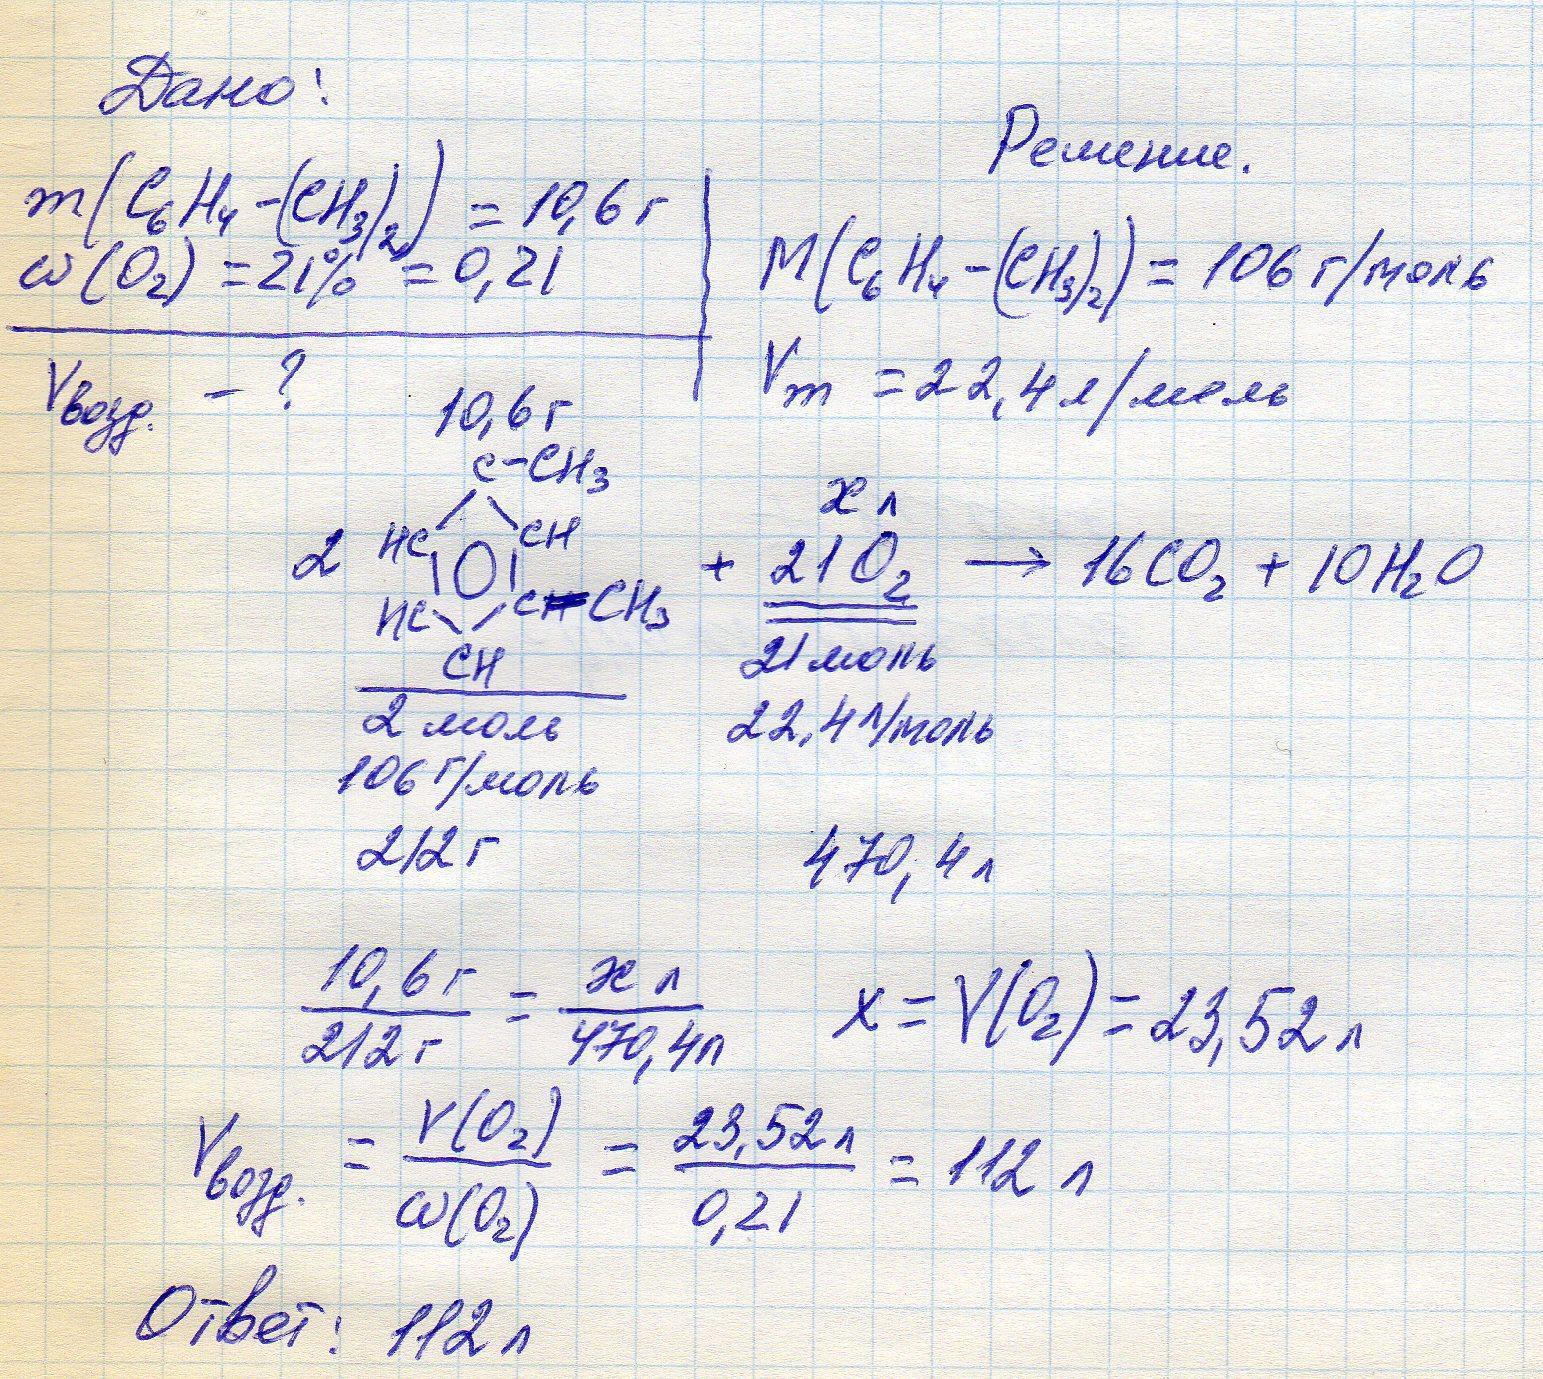 Дано:
m(C₆H₄-(CH₃)₂) = 10,6 г
ω(O₂) = 21% = 0,21
Vвозд. - ?
Решение.
M(C₆H₄-(CH₃)₂) = 106 г/моль
Vm = 22,4 л/моль
10,6 г
C-CH₃
x л
HC CH
2 + 21O₂ → 16CO₂ + 10H₂O
HC C-CH₃
CH
2 моль 21 моль
106 г/моль 22,4 л/моль
212 г 470,4 л
10,6 г / 212 г = x л / 470,4 л x = V(O₂) = 23,52 л
Vвозд. = V(O₂) / ω(O₂) = 23,52 л / 0,21 = 112 л
Ответ: 112 л